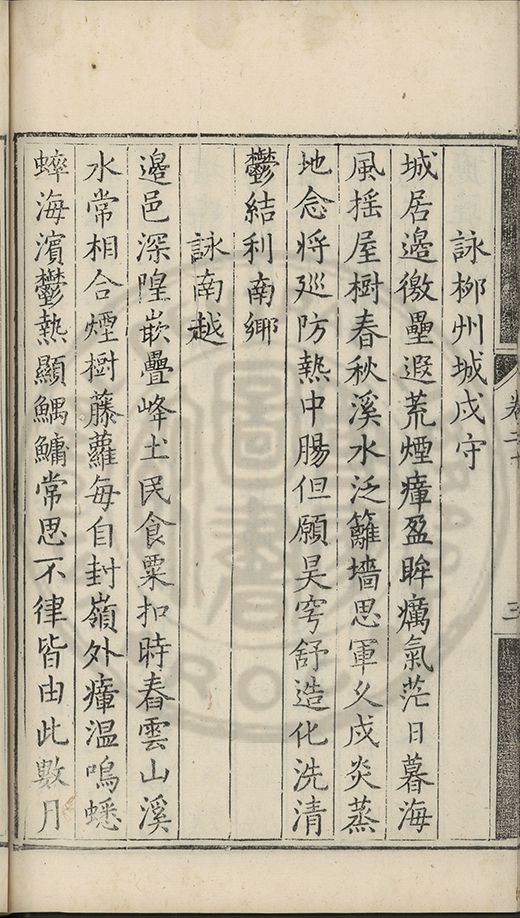 詠柳州城戍守
城居邊徼壘遐荒煙瘴盈眸癘氣茫日暮海
風搖屋樹春秋溪水泛籬墻思軍久戍炎蒸
地念將廵防熱中腸但願昊穹舒造化洗清
鬱結利南鄉
詠南越
邊邑深隍嵌疊峰土民食粟扣時舂雲山溪
水常相合煙樹藤蘿每自封嶺外瘴溫鳴蟋
蟀海濱鬱熱顯鰅鱅常思不律皆由此數月